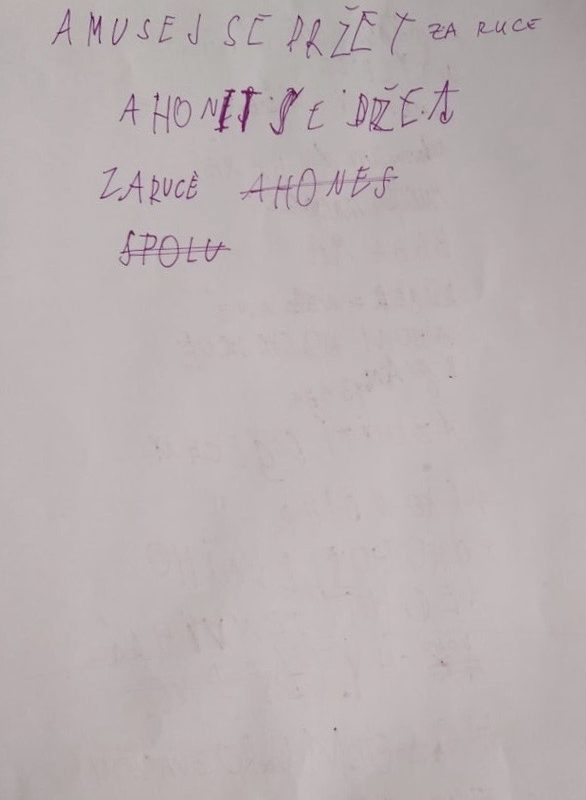 A MUSEJ SE DRŽET ZA RUCE
A HONIT SE DRŽET
ZA RUCE A HONĚS
SPOLU